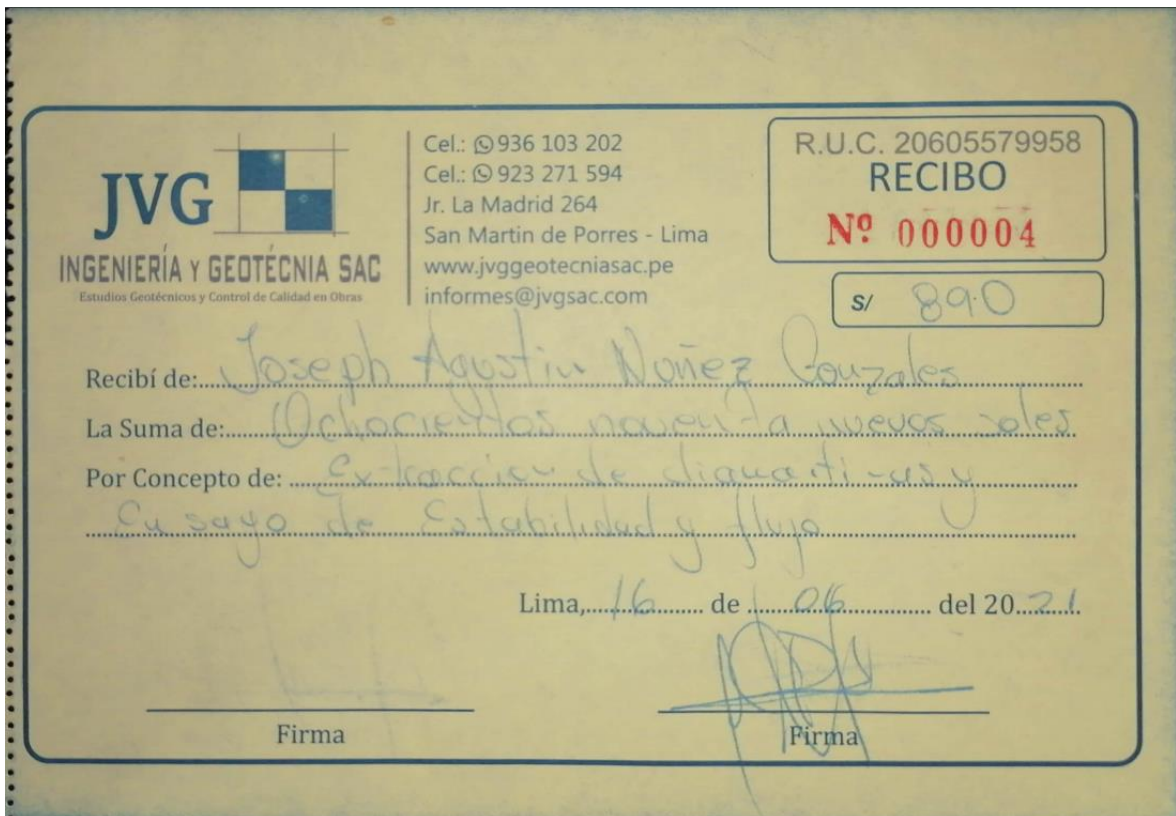 JVG
INGENIERÍA Y GEOTÉCNIA SAC
Estudios Geotécnicos y Control de Calidad en Obras
Cel.: 936 103 202
Cel.: 923 271 594
Jr. La Madrid 264
San Martin de Porres - Lima
www.jvggeotecniasac.pe
informes@jvgsac.com
R.U.C. 20605579958
RECIBO
Nº 000004
S/ 890
Recibí de: Joseph Agustin Nuñez Gonzales
La Suma de: Ochocientos noventa nuevos soles
Por Concepto de: Extraccion de diamantinas y
Ensayo de Estabilidad y flujo
Lima, 16 de 06 del 2021
Firma
Firma